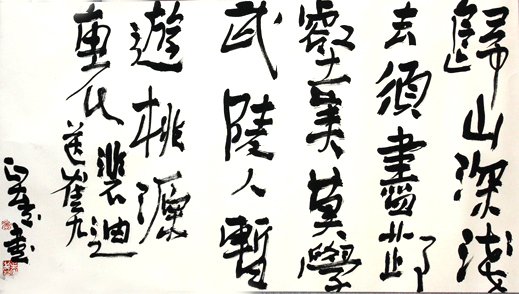 歸山深淺
去須盡邱
壑美莫學
武陵人暫
遊桃源
裏 裴迪
送崔九
書